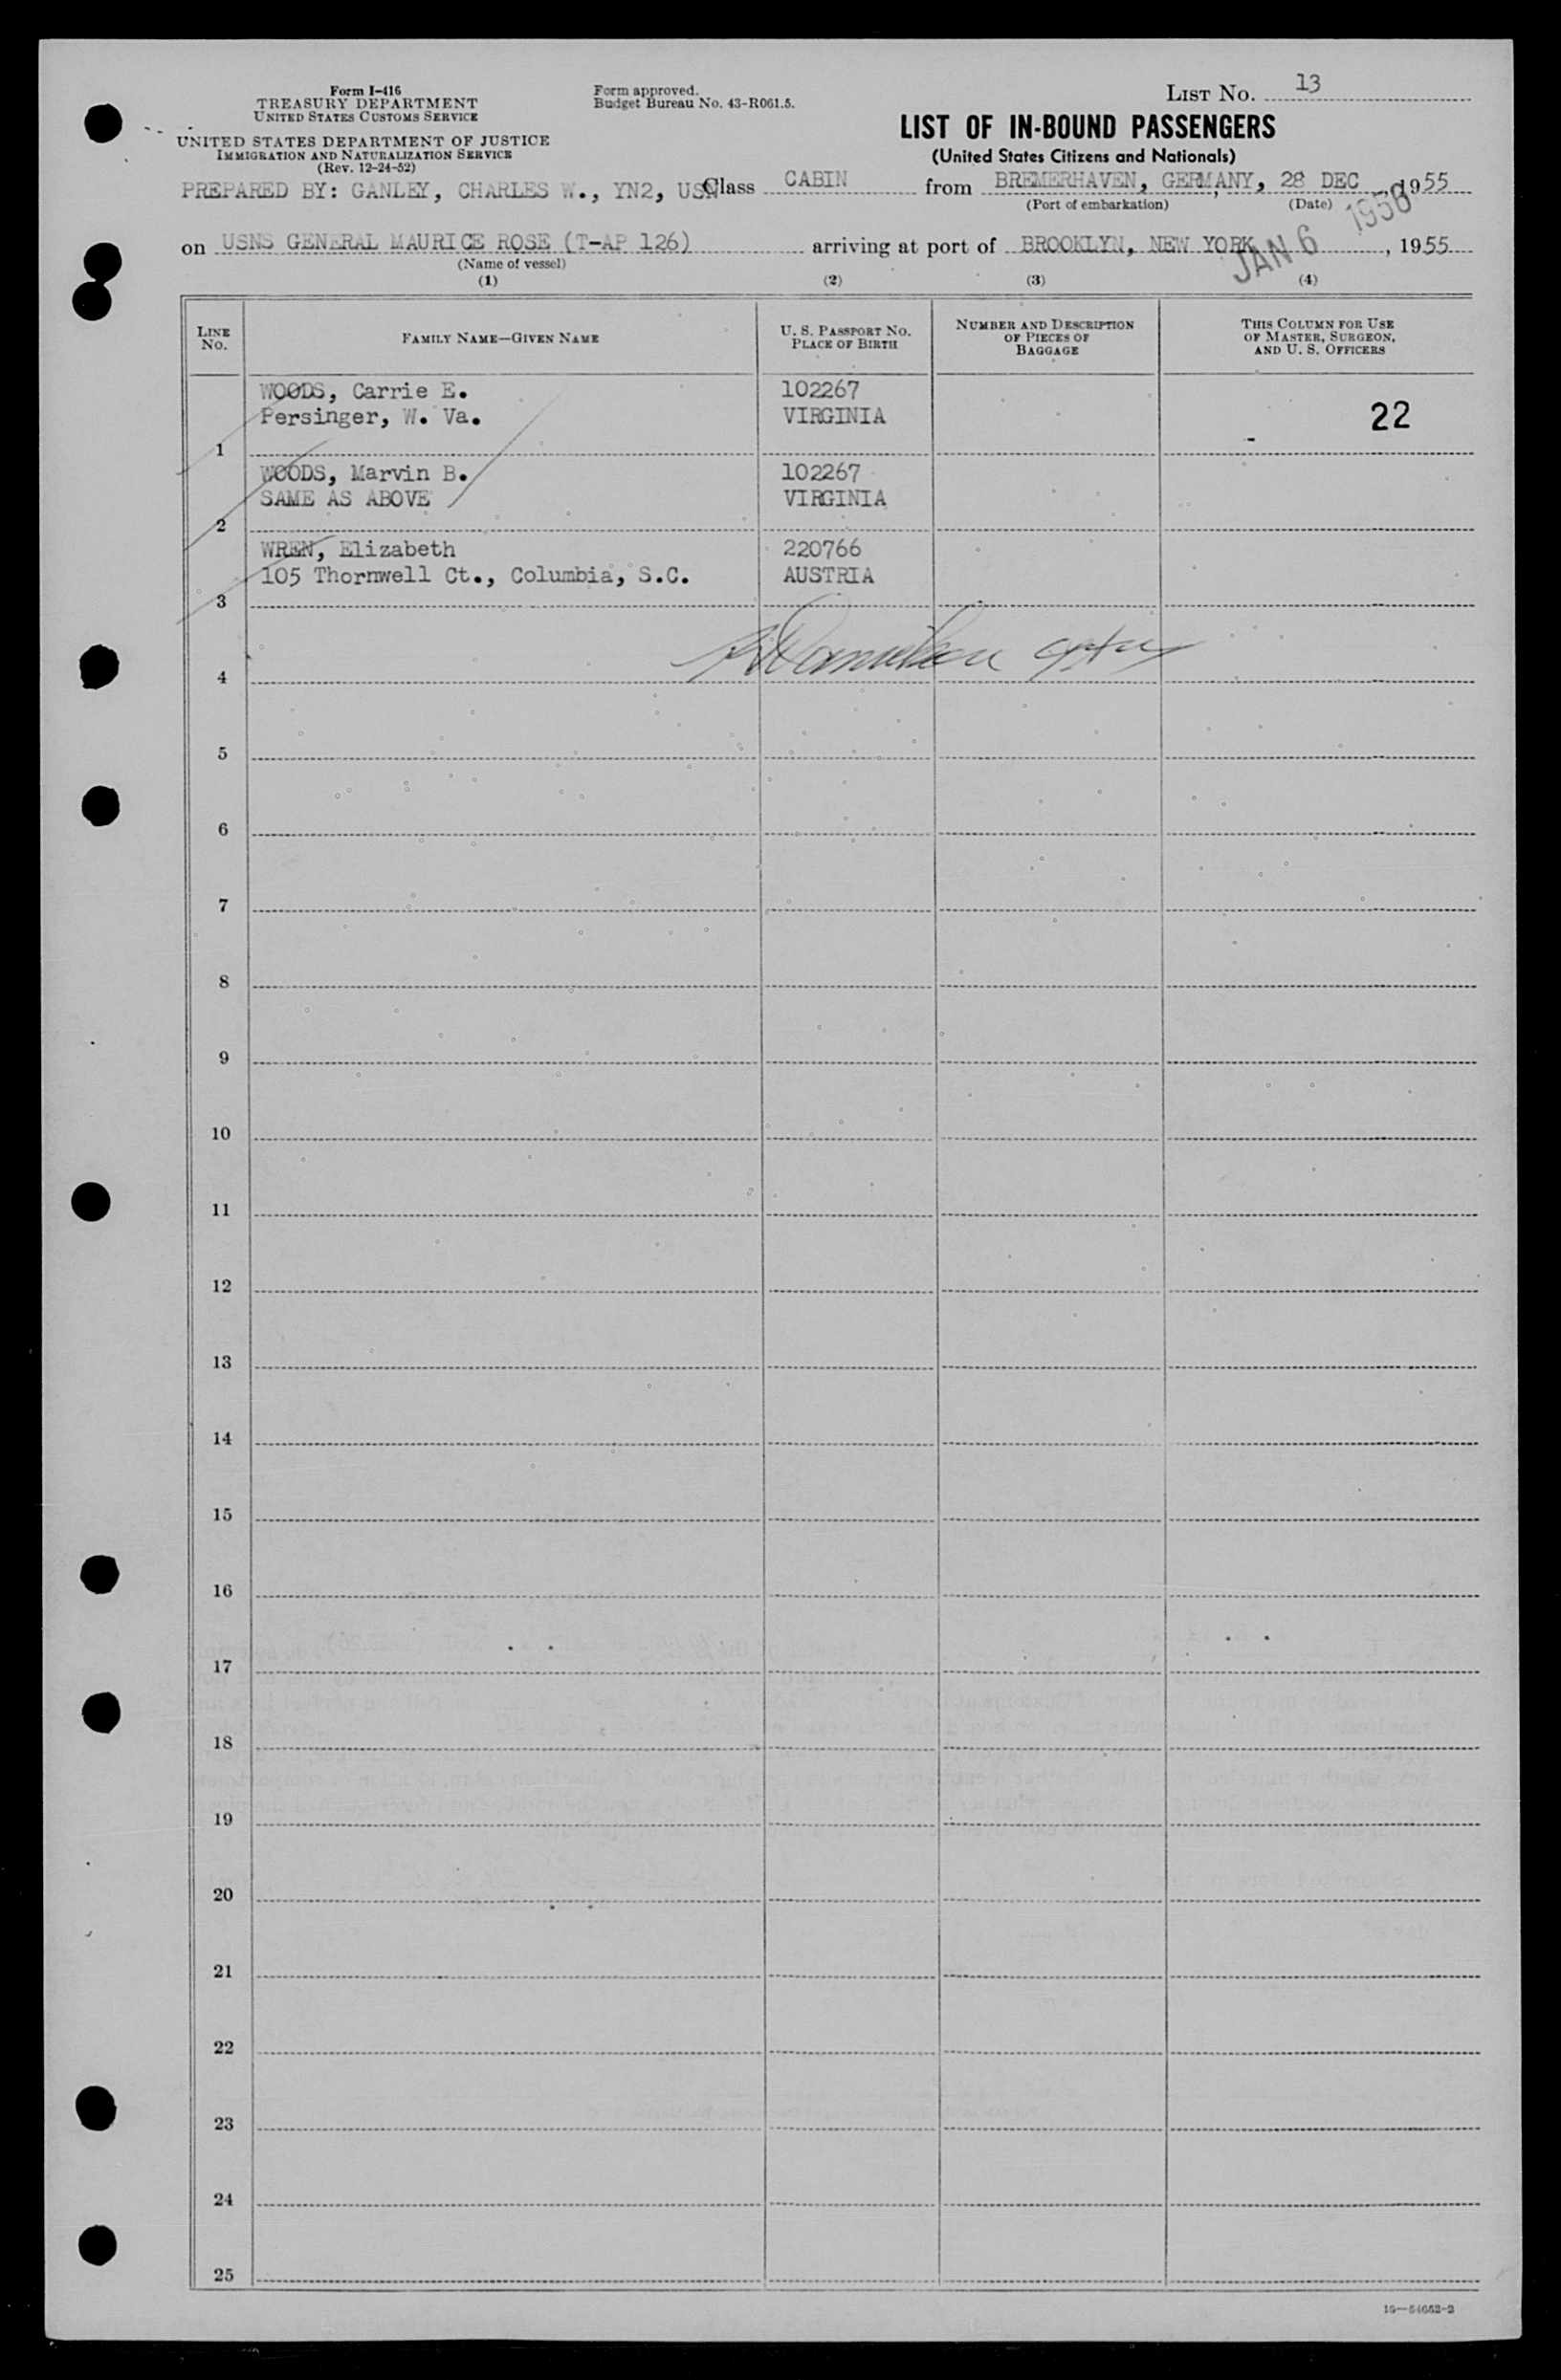 Form I-416
TREASURY DEPARTMENT
UNITED STATES CUSTOMS SERVICE
UNITED STATES DEPARTMENT OF JUSTICE
IMMIGRATION AND NATURALIZATION SERVICE
(Rev. 12-24-52)
Form approved.
Budget Bureau No. 43-R061.5.
LIST No. 13
LIST OF IN-BOUND PASSENGERS
(United States Citizens and Nationals)
PREPARED BY: GANLEY, CHARLES W., YN2, USN Class CABIN from BREMERHAVEN, GERMANY, 28 DEC, 1955
(Port of embarkation) (Date)
on USNS GENERAL MAURICE ROSE (T-AP 126) arriving at port of BROOKLYN, NEW YORK, 1955
JAN 6 1956
(Name of vessel)
(1) (2) (3) (4)
LINE No. FAMILY NAME—GIVEN NAME U. S. PASSPORT No. PLACE OF BIRTH NUMBER AND DESCRIPTION OF PIECES OF BAGGAGE THIS COLUMN FOR USE OF MASTER, SURGEON, AND U. S. OFFICERS
WOODS, Carrie E. 102267
Persinger, W. Va. VIRGINIA 22
1
WOODS, Marvin B. 102267
SAME AS ABOVE VIRGINIA
2
WREN, Elizabeth 220766
105 Thornwell Ct., Columbia, S.C. AUSTRIA
3
4
5
6
7
8
9
10
11
12
13
14
15
16
17
18
19
20
21
22
23
24
25
16—54652-2